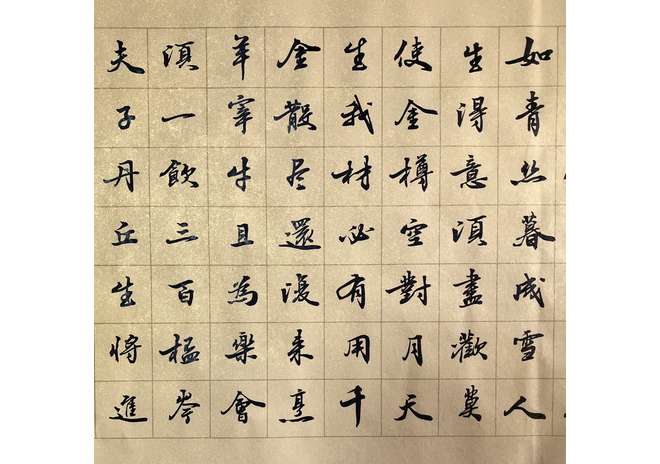 如青丝暮成雪人
生得意須盡歡莫
使金樽空對月天
生我材必有用千
金散尽還復来烹
羊宰牛且為樂會
須一飲三百杯岑
夫子丹丘生将進